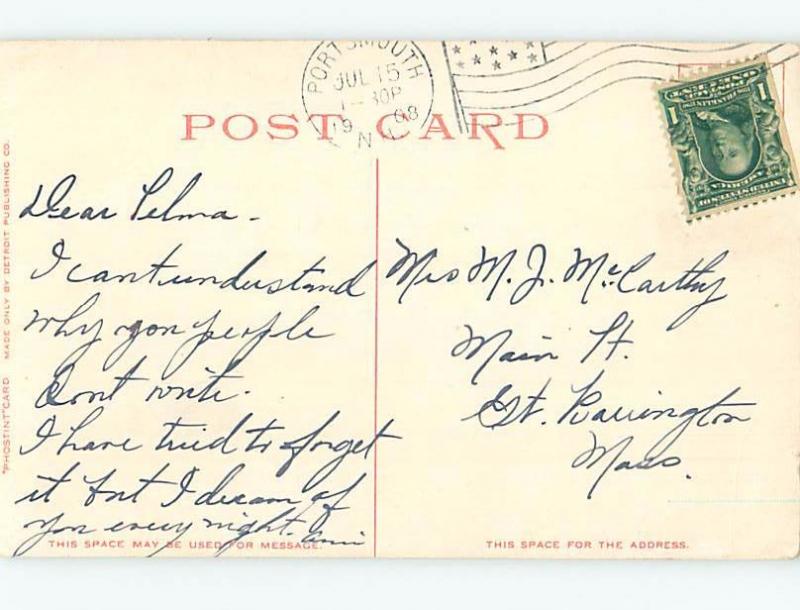 PORTSMOUTH
JUL 15
1-30P
1908
N.H.
POST CARD
ONE 1 CENT
"PHOSTINT" CARD MADE ONLY BY DETROIT PUBLISHING CO.
Dear Selma -
I can't understand
why you people
dont write.
I have tried to forget
it but I dream of
you every night.
Mrs M. J. McCarthy
Main St.
Gt. Barrington
Mass.
THIS SPACE MAY BE USED FOR MESSAGE.
THIS SPACE FOR THE ADDRESS.